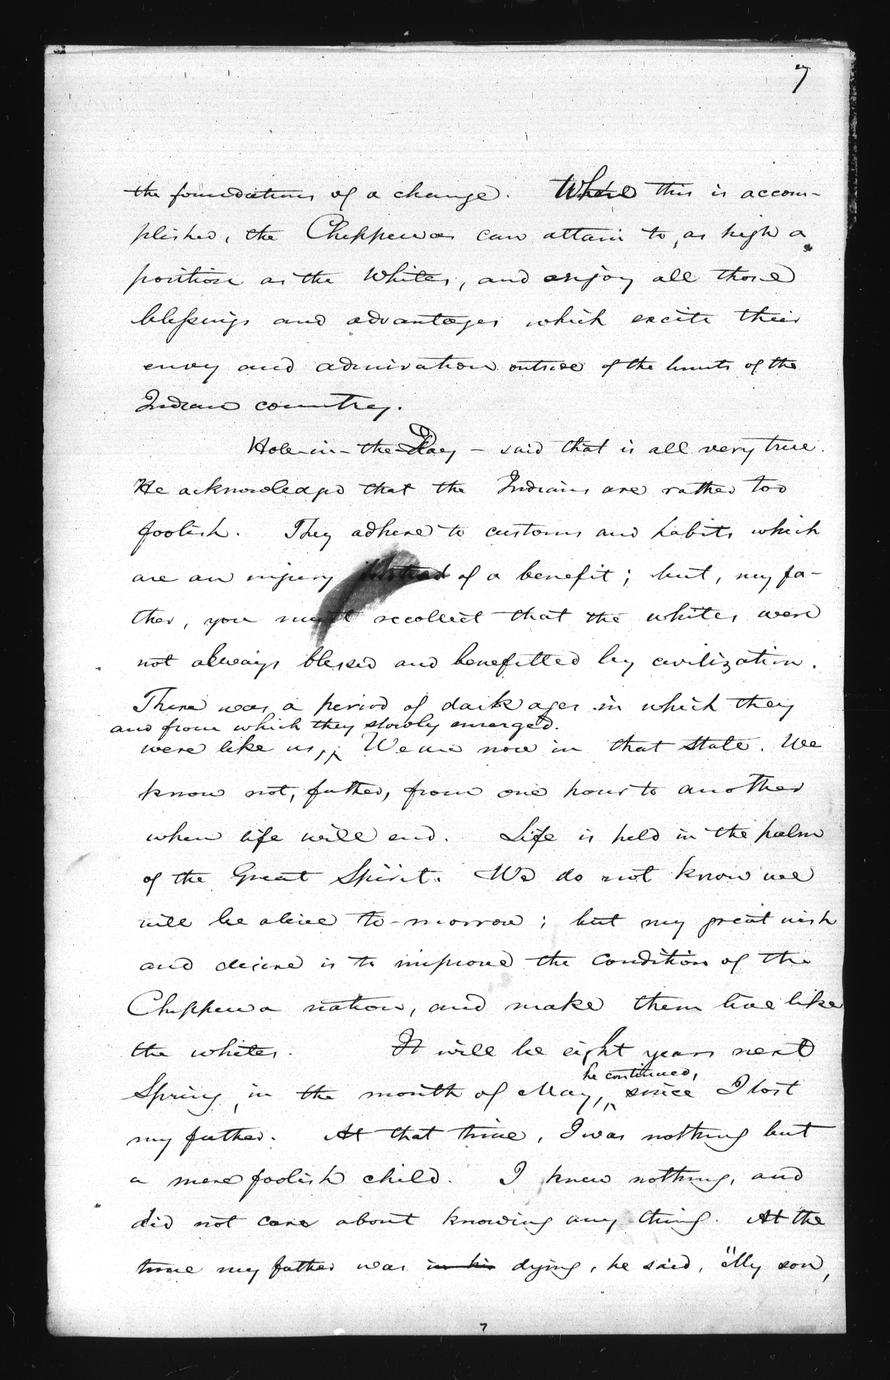 7
the foundations of a change. When this is accom-
plished, the Chippewas can attain to as high a
position as the whites, and enjoy all those
blessings and advantages which excite their
envy and admiration outside of the limits of the
Indian country.
Hole-in-the-Day - said that is all very true.
He acknowledged that the Indians are rather too
foolish. They adhere to customs and habits which
are an injury instead of a benefit; but, my fa-
ther, you must recollect that the whites were
not always blessed and benefitted by civilization.
There was a period of dark ages in which they
and from which they slowly emerged.
were like us,; We are now in that state. We
know not, father, from one hour to another
when life will end. Life is held in the palm
of the Great Spirit. We do not know we
will be alive to-morrow; but my great wish
and desire is to improve the condition of the
Chippewa nation, and make them live like
the whites. It will be eight years next
he continued,
Spring, in the month of May, since I lost
my father. At that time, I was nothing but
a mere foolish child. I knew nothing, and
did not care about knowing any thing. At the
time my father was in his dying, he said, "My son,
7